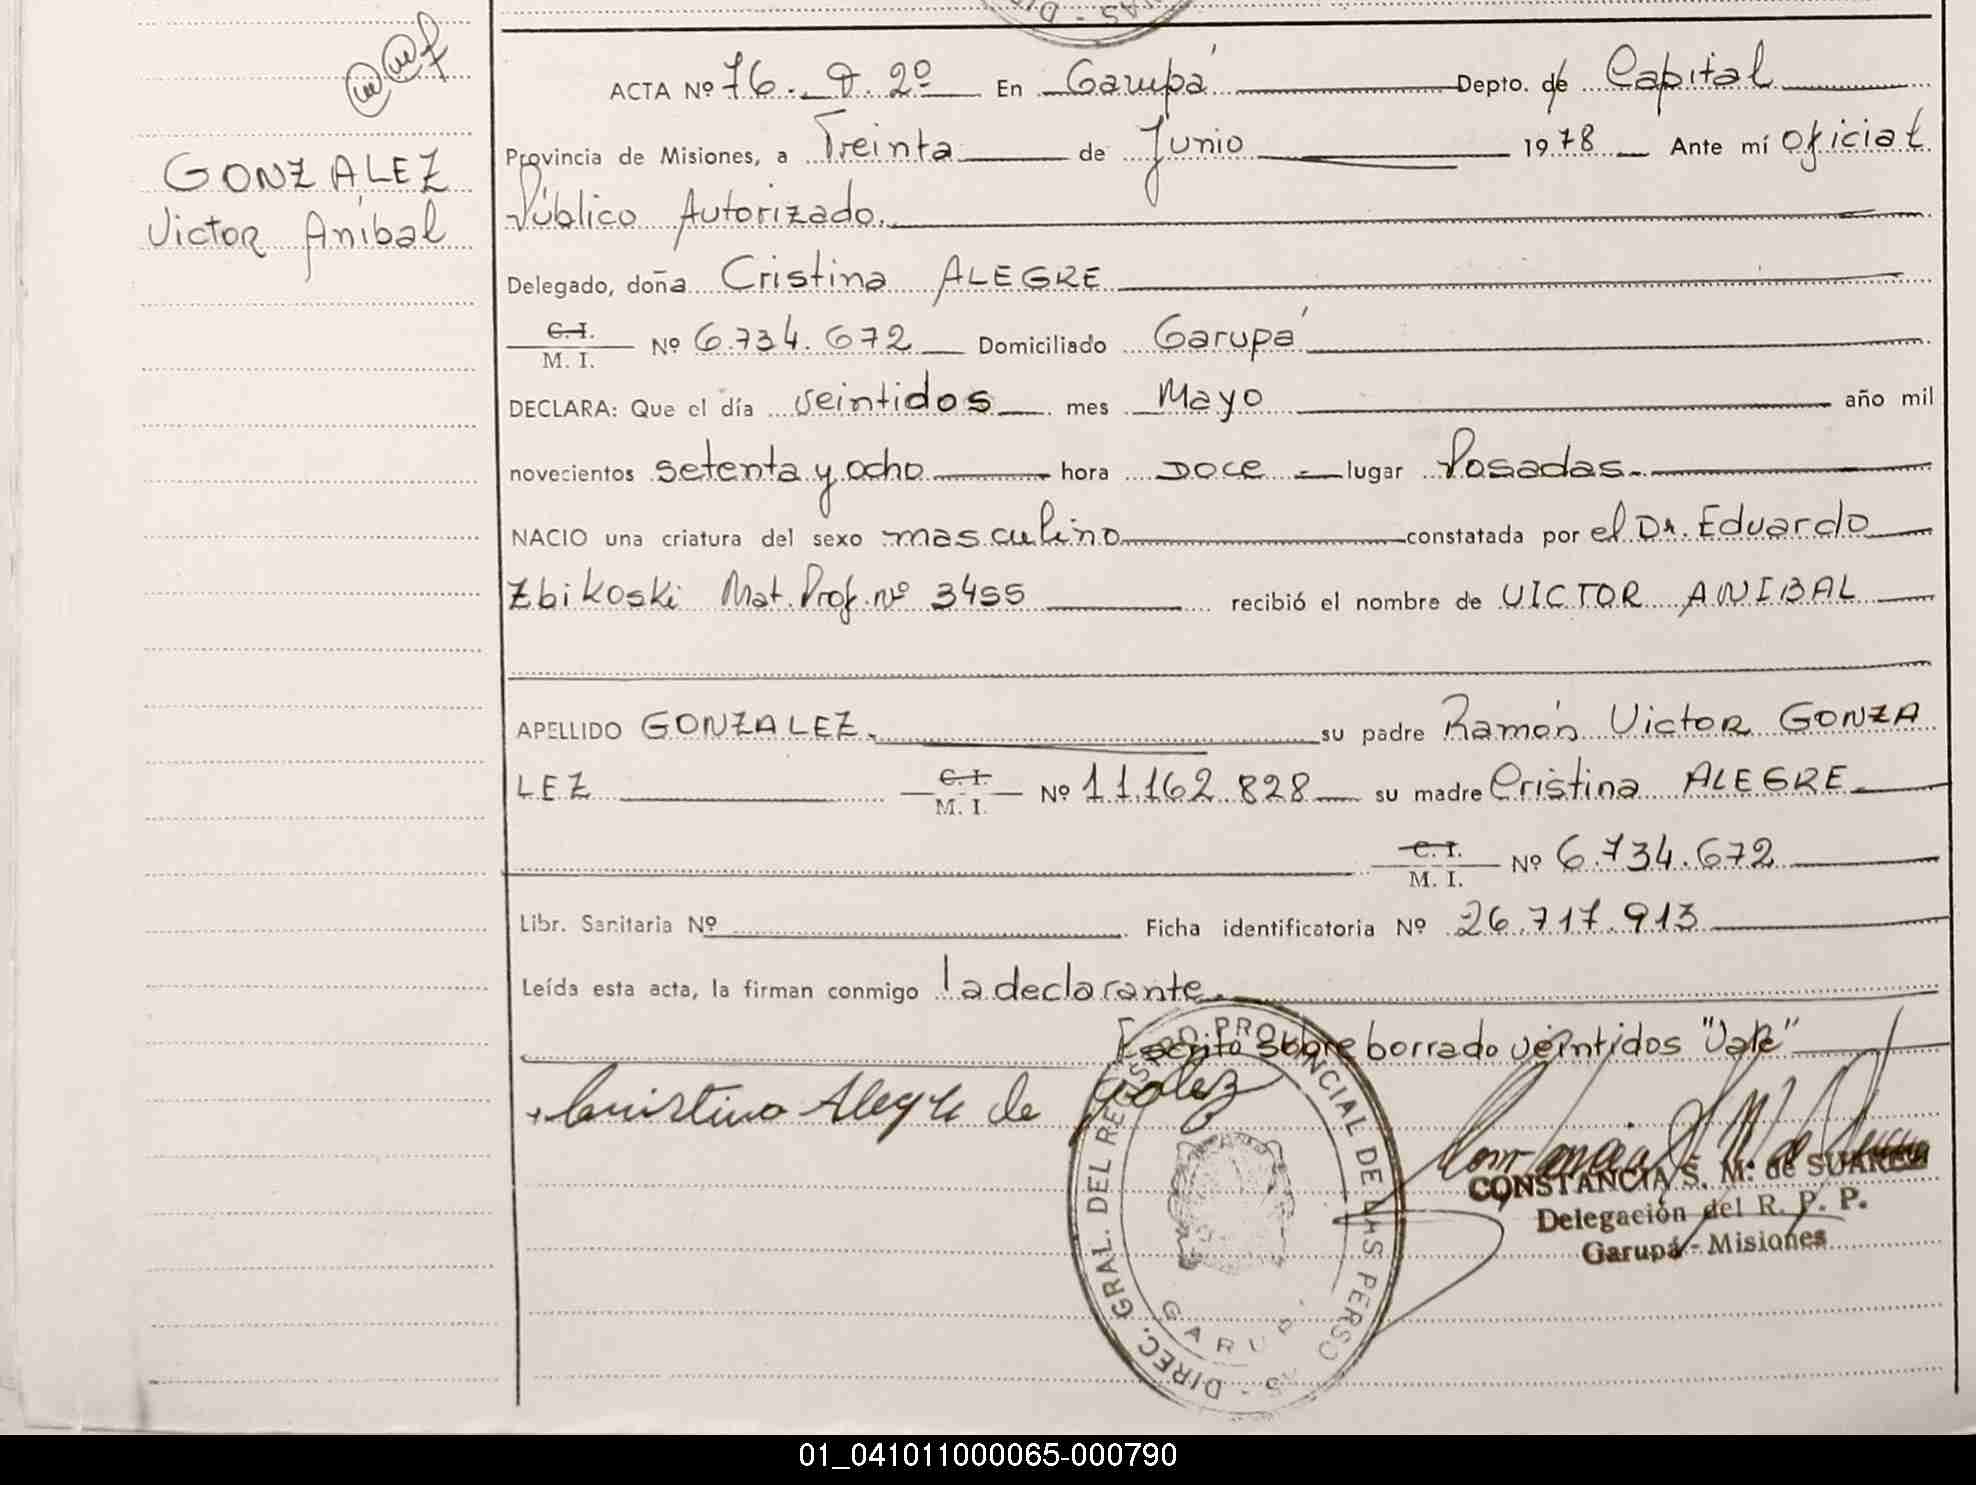 GONZALEZ
Victor Aníbal
ACTA Nº 76. T. 2º En Garupá Depto. de Capital
Provincia de Misiones, a Treinta de Junio 1978 Ante mí Oficial
Público Autorizado.
Delegado, doña Cristina ALEGRE
C.I.
M. I. Nº 6.734.672 Domiciliado Garupá
DECLARA: Que el día veintidos mes Mayo año mil
novecientos setenta y ocho hora DOCE lugar Posadas.
NACIO una criatura del sexo masculino constatada por el Dr. Eduardo
Zbikoski Mat. Prof. nº 3455 recibió el nombre de VICTOR ANIBAL
APELLIDO GONZALEZ. su padre Ramón Victor GONZA
LEZ C. I.
M. I. Nº 11.162.828 su madre Cristina ALEGRE
C. I.
M. I. Nº 6.734.672
Libr. Sanitaria Nº Ficha identificatoria Nº 26.717.913
Leída esta acta, la firman conmigo la declarante.
Escrito sobre borrado veintidos "Vale"
Cristina Alegre de Golez
DIREC. GRAL. DEL REGISTRO PROVINCIAL DE LAS PERSO AS
GARUP
CONSTANCIA S. M. de SUAREZ
Delegación del R. P. P.
Garupá - Misiones
01_041011000065-000790